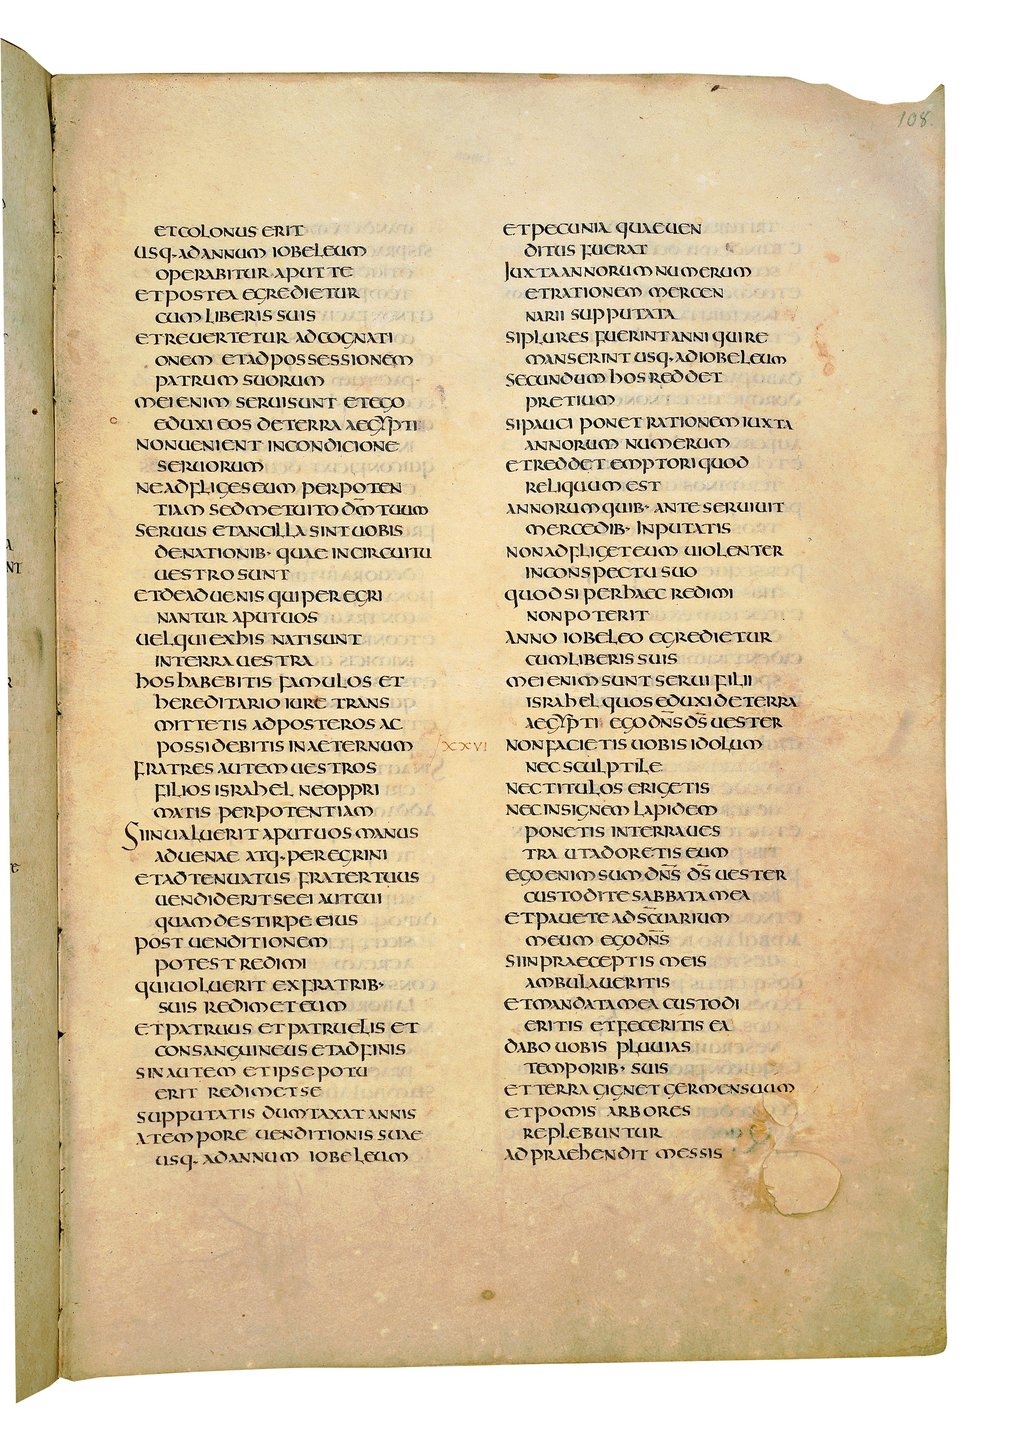 108.
ET COLONUS ERIT
USQ· AD ANNUM IOBELEUM
OPERABITUR APUT TE
ET POSTEA EGREDIETUR
CUM LIBERIS SUIS
ET REUERTETUR AD COGNATI
ONEM ET AD POSSESSIONEM
PATRUM SUORUM
MEI ENIM SERUI SUNT ET EGO
EDUXI EOS DE TERRA AEGYPTI
NON UENIENT IN CONDICIONE
SERUORUM
NE ADFLIGES EUM PER POTEN
TIAM SED METUITO DM̅ TUUM
SERUUS ET ANCILLA SINT UOBIS
DE NATIONIB· QUAE IN CIRCUITU
UESTRO SUNT
ET DE ADUENIS QUI PEREGRI
NANTUR APUT UOS
UEL QUI EX HIS NATI SUNT
IN TERRA UESTRA
HOS HABEBITIS FAMULOS ET
HEREDITARIO IURE TRANS
MITTETIS AD POSTEROS AC
POSSIDEBITIS IN AETERNUM
FRATRES AUTEM UESTROS
FILIOS ISRAHEL NE OPPRI
MATIS PER POTENTIAM
SI INUALUERIT APUT UOS MANUS
ADUENAE ATQ· PEREGRINI
ET ADTENUATUS FRATER TUUS
UENDIDERIT SE EI AUT CUI
QUAM DE STIRPE EIUS
POST UENDITIONEM
POTEST REDIMI
QUI UOLUERIT EX FRATRIB·
SUIS REDIMET EUM
ET PATRUUS ET PATRUELIS ET
CONSANGUINEUS ET ADFINIS
SIN AUTEM ET IPSE POTU
ERIT REDIMET SE
SUPPUTATIS DUMTAXAT ANNIS
A TEMPORE UENDITIONIS SUAE
USQ· AD ANNUM IOBELEUM
ET PECUNIA QUA EUEN
DITUS FUERAT
IUXTA ANNORUM NUMERUM
ET RATIONEM MERCEN
NARII SUPPUTATA
SI PLURES FUERINT ANNI QUI RE
MANSERINT USQ· AD IOBELEUM
SECUNDUM HOS REDDET
PRETIUM
SI PAUCI PONET RATIONEM IUXTA
ANNORUM NUMERUM
ET REDDET EMPTORI QUOD
RELIQUUM EST
ANNORUM QUIB· ANTE SERUIUIT
MERCEDIB· INPUTATIS
NON ADFLIGET EUM UIOLENTER
IN CONSPECTU SUO
QUOD SI PER HAEC REDIMI
NON POTERIT
ANNO IOBELEO EGREDIETUR
CUM LIBERIS SUIS
MEI ENIM SUNT SERUI FILII
ISRAHEL QUOS EDUXI DE TERRA
AEGYPTI EGO DN̅S D̅S UESTER
XXVI NON FACIETIS UOBIS IDOLUM
NEC SCULPTILE
NEC TITULOS ERIGETIS
NEC INSIGNEM LAPIDEM
PONETIS IN TERRA UES
TRA UT ADORETIS EUM
EGO ENIM SUM DN̅S D̅S UESTER
CUSTODITE SABBATA MEA
ET PAUETE AD SC̅UARIUM
MEUM EGO DN̅S
SI IN PRAECEPTIS MEIS
AMBULAUERITIS
ET MANDATA MEA CUSTODI
ERITIS ET FECERITIS EA
DABO UOBIS PLUUIAS
TEMPORIB· SUIS
ET TERRA GIGNET GERMEN SUUM
ET POMIS ARBORES
REPLEBUNTUR
ADPRAEHENDIT MESSIS